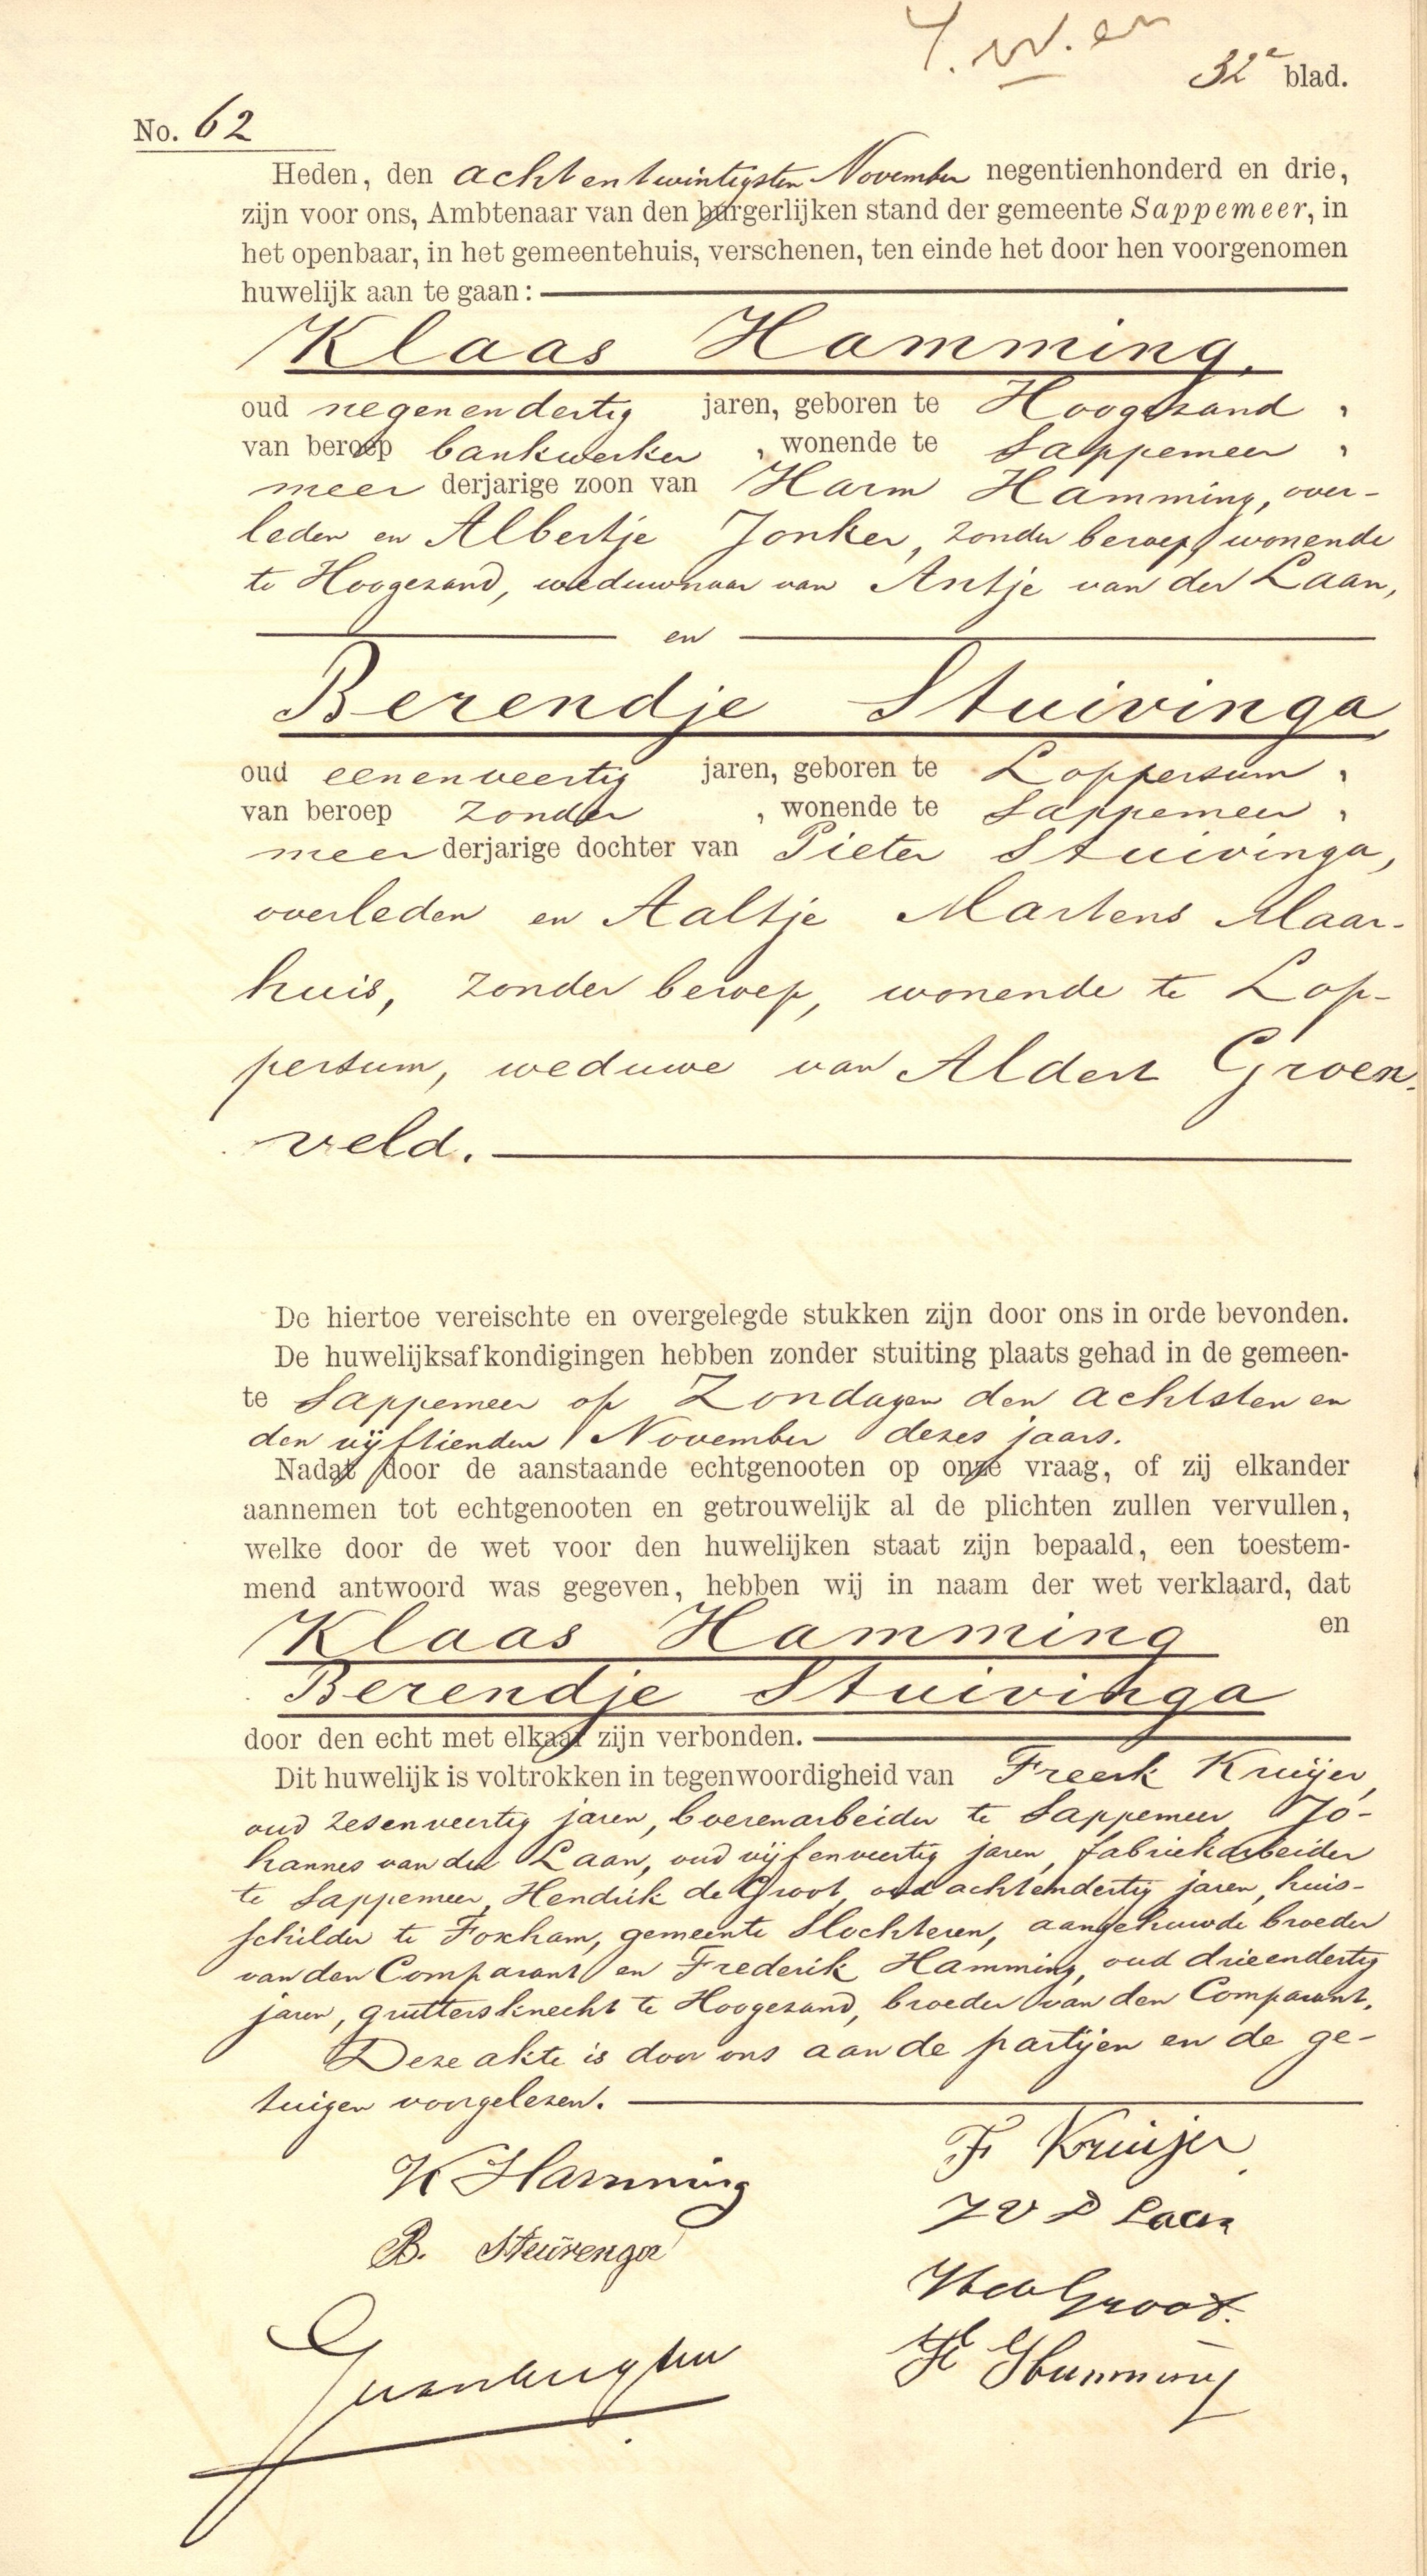 32e blad.
No. 62
Heden, den achtentwintigsten November negentienhonderd en drie,
zijn voor ons, Ambtenaar van den burgerlijken stand der gemeente Sappemeer, in
het openbaar, in het gemeentehuis, verschenen, ten einde het door hen voorgenomen
huwelijk aan te gaan:
Klaas Hamming,
oud negenendertig jaren, geboren te Hoogezand,
van beroep bankwerker, wonende te Sappemeer,
meer derjarige zoon van Harm Hamming, over-
leden en Albertje Jonker, zonder beroep, wonende
te Hoogezand, weduwnaar van Antje van der Laan,
en
Berendje Stuivinga
oud eenenveertig jaren, geboren te Loppersum,
van beroep zonder, wonende te Sappemeer,
meer derjarige dochter van Pieter Stuivinga,
overleden en Aaltje Martens Maar-
huis, zonder beroep, wonende te Lop-
persum, weduwe van Aldert Groen-
veld.
De hiertoe vereischte en overgelegde stukken zijn door ons in orde bevonden.
De huwelijksafkondigingen hebben zonder stuiting plaats gehad in de gemeen-
te Sappemeer op Zondagen den achtsten en
den vijftienden November dezes jaars.
Nadat door de aanstaande echtgenooten op onze vraag, of zij elkander
aannemen tot echtgenooten en getrouwelijk al de plichten zullen vervullen,
welke door de wet voor den huwelijken staat zijn bepaald, een toestem-
mend antwoord was gegeven, hebben wij in naam der wet verklaard, dat
Klaas Hamming en
Berendje Stuivinga
door den echt met elkaar zijn verbonden.
Dit huwelijk is voltrokken in tegenwoordigheid van Freerk Kruijer,
oud zesenveertig jaren, boerenarbeider te Sappemeer, Jo-
hannes van der Laan, oud vijfenveertig jaren, fabriekarbeider
te Sappemeer, Hendrik de Groot, oud achtendertig jaren, huis-
schilder te Foxham, gemeente Slochteren, aangehuwde broeder
van den Comparant en Frederik Hamming, oud drieendertig
jaren, gruttersknecht te Hoogezand, broeder van den Comparant.
Deze akte is door ons aan de partijen en de ge-
tuigen voorgelezen.
K Hamming
F Kruijer
J V D Laan
B. Steuvenga
H de Groot.
F Hamming